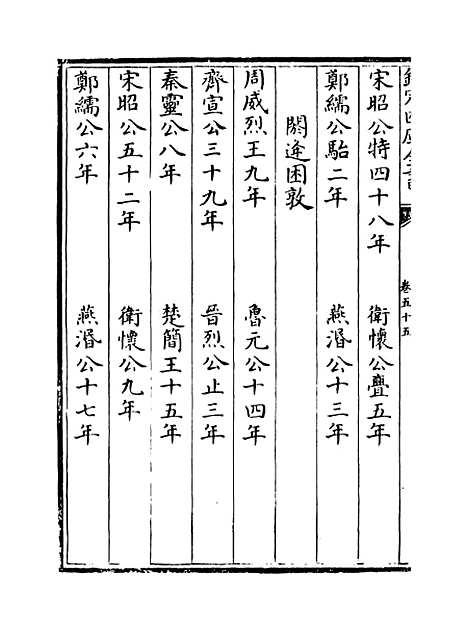 欽定四庫全書
卷五十五
宋昭公特四十八年　衛懷公亹五年
鄭繻公駘二年　燕湣公十三年
閼逢困敦
周威烈王九年　魯元公十四年
齊宣公三十九年　晉烈公止三年
秦靈公八年　楚簡王十五年
宋昭公五十二年　衛懷公九年
鄭繻公六年　燕湣公十七年